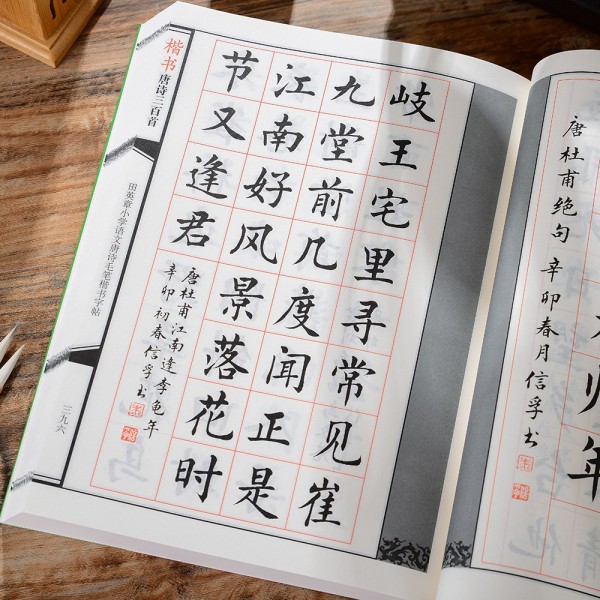 唐杜甫绝句 辛卯春月信孚书
年
岐王宅里寻常见崔
九堂前几度闻正是
江南好风景落花时
节又逢君
唐杜甫江南逢李龟年
辛卯初春信孚书
楷书 唐诗三百首
田英章小学语文唐诗毛笔楷书字帖
三九六